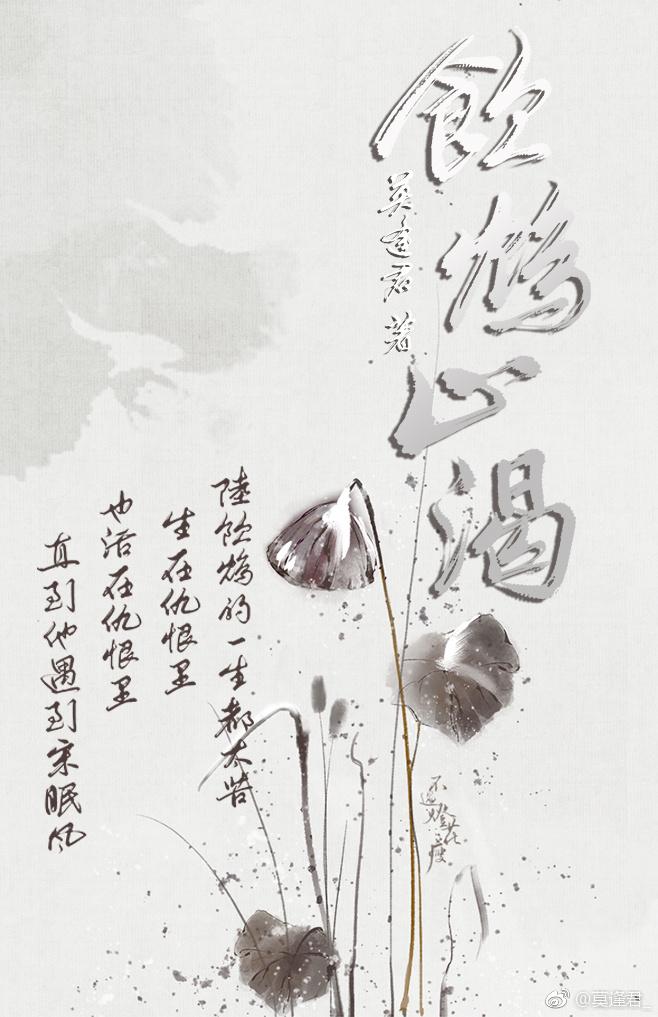 飲鴆止渴
莫逢君 著
陸飲鴆的一生都太苦
生在仇恨里
也活在仇恨里
直到他遇到宋眠风
@莫逢君_